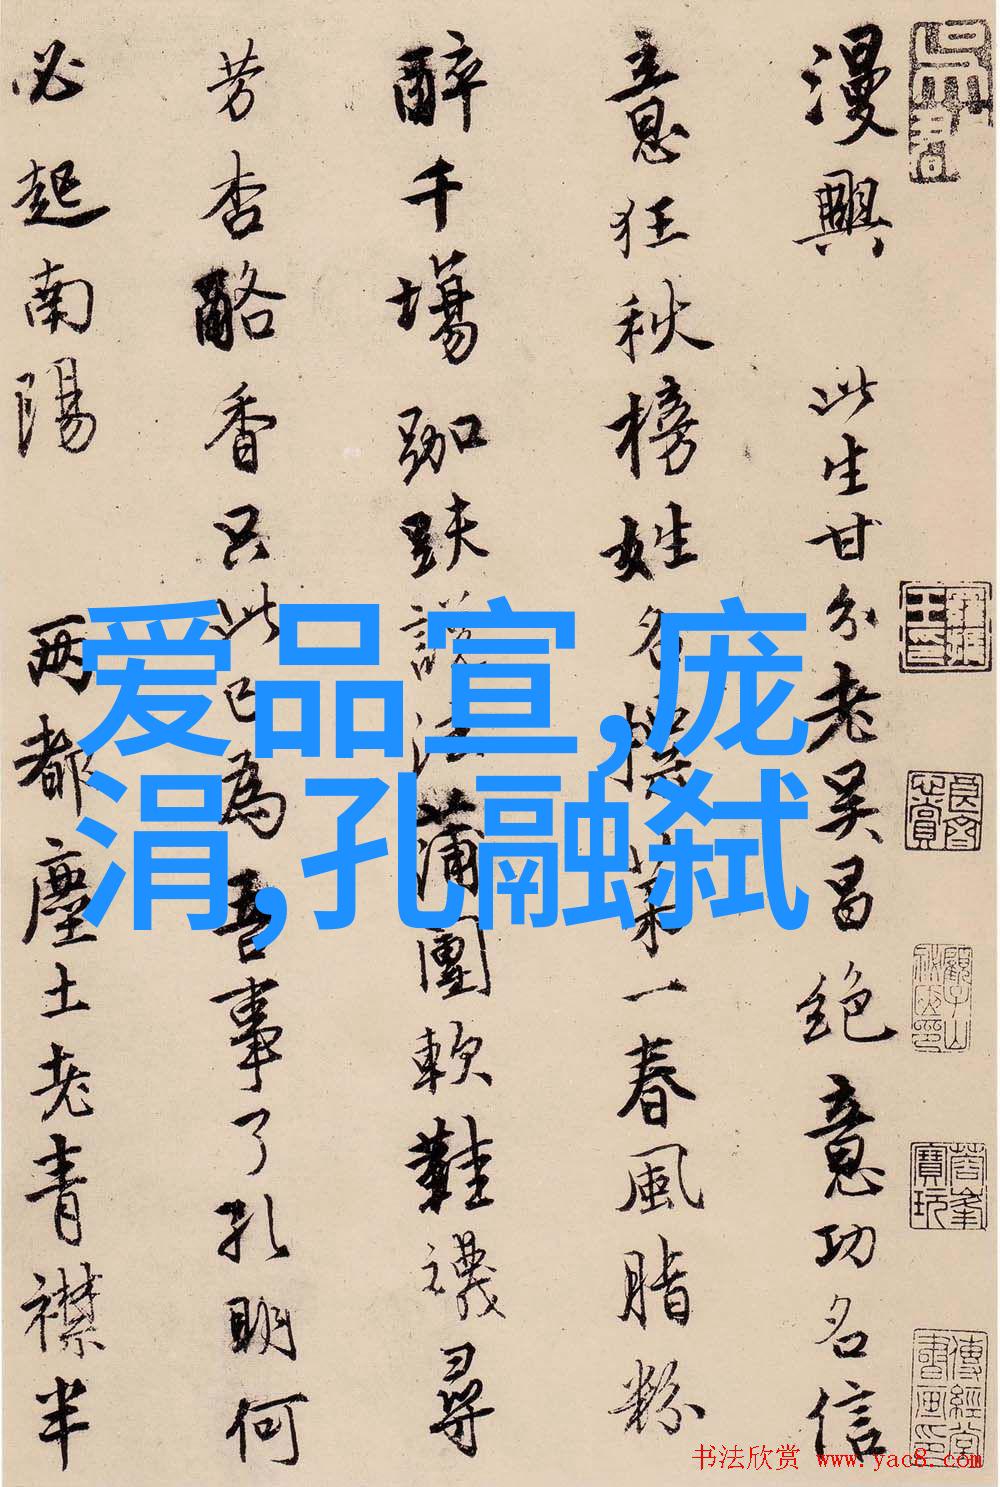 漫興 此生甘分老吳昌絕意功名信
意狂秋榜姓名第一春風脂粉
醉千場跏趺說法蒲團軟鞋襪尋
芳杏酪香只此已為吾事了孔明何
必起南陽 兩都塵土老青襟半
爱品宣,庞
涓,孔融弑
书法欣赏 www.yac8.com